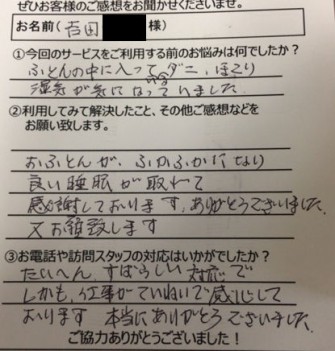 ぜひお客様のご感想をお聞かせくださいませ。
お名前（吉田　様）
①今回のサービスをご利用する前のお悩みは何でしたか？
ふとんの中に入っているダニ、ほこり
湿気が気になっていました。
②利用してみて解決したこと、その他ご感想などを
お願い致します。
おふとんが、ふかふかになり
良い睡眠が取れて
感謝しております。ありがとうございました。
又お願致します
③お電話や訪問スタッフの対応はいかがでしたか？
たいへん、すばらしい対応で
しかも、仕事がていねいで感心して
おります 本当にありがとうございました。
ご協力ありがとうございました！